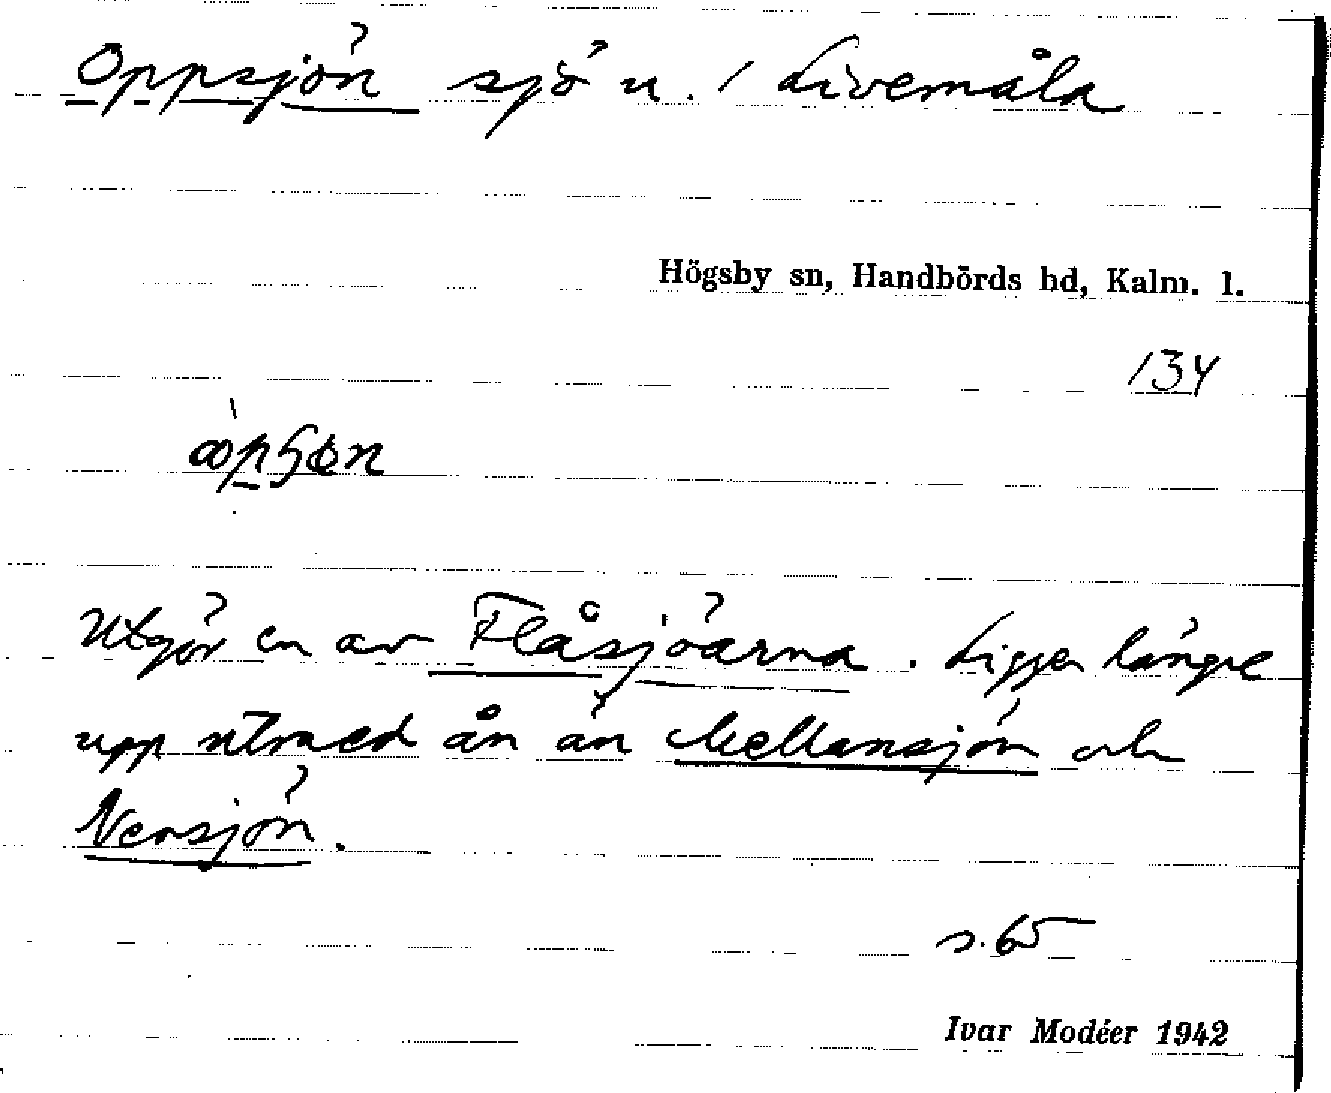 Oppsjön sjö u. / Livemåla
Högsby sn, Handbörds hd, Kalm. l.
134
Utgör en av Flåsjöarna. Ligger längre
upp utmed ån än Mellansjön och
Nersjön.
s. 65
Ivar Modéer 1942